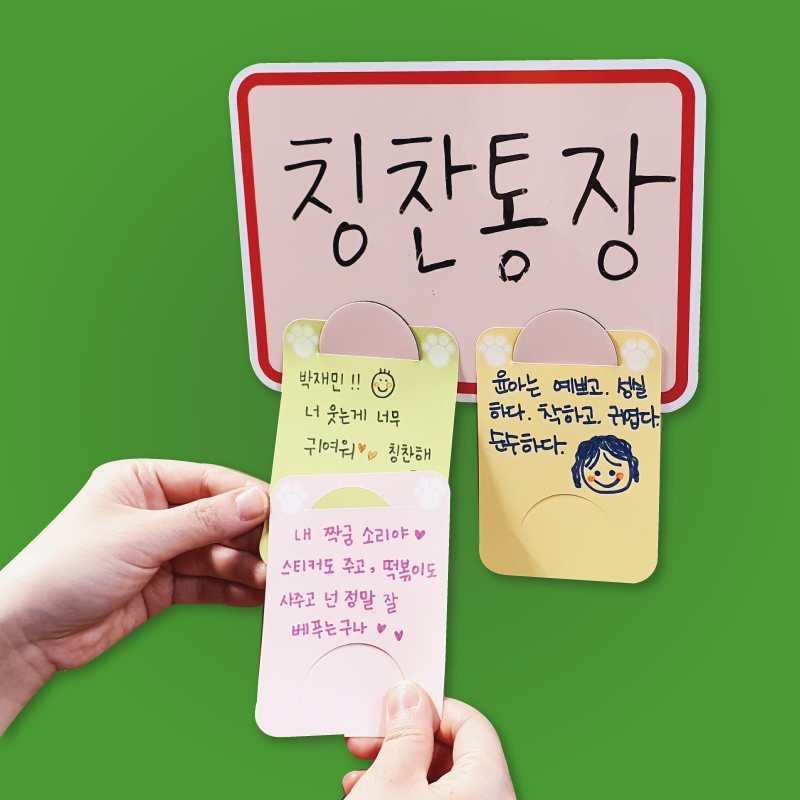 칭찬통장
박재민!!
너 웃는게 너무
귀여워 칭찬해
내 짝궁 소리야♥
스티커도 주고, 떡볶이도
사주고 넌 정말 잘
베푸는구나 ♥ ♥
윤아는 예쁘고. 성실
하다. 착하고. 귀엽다.
순수하다.